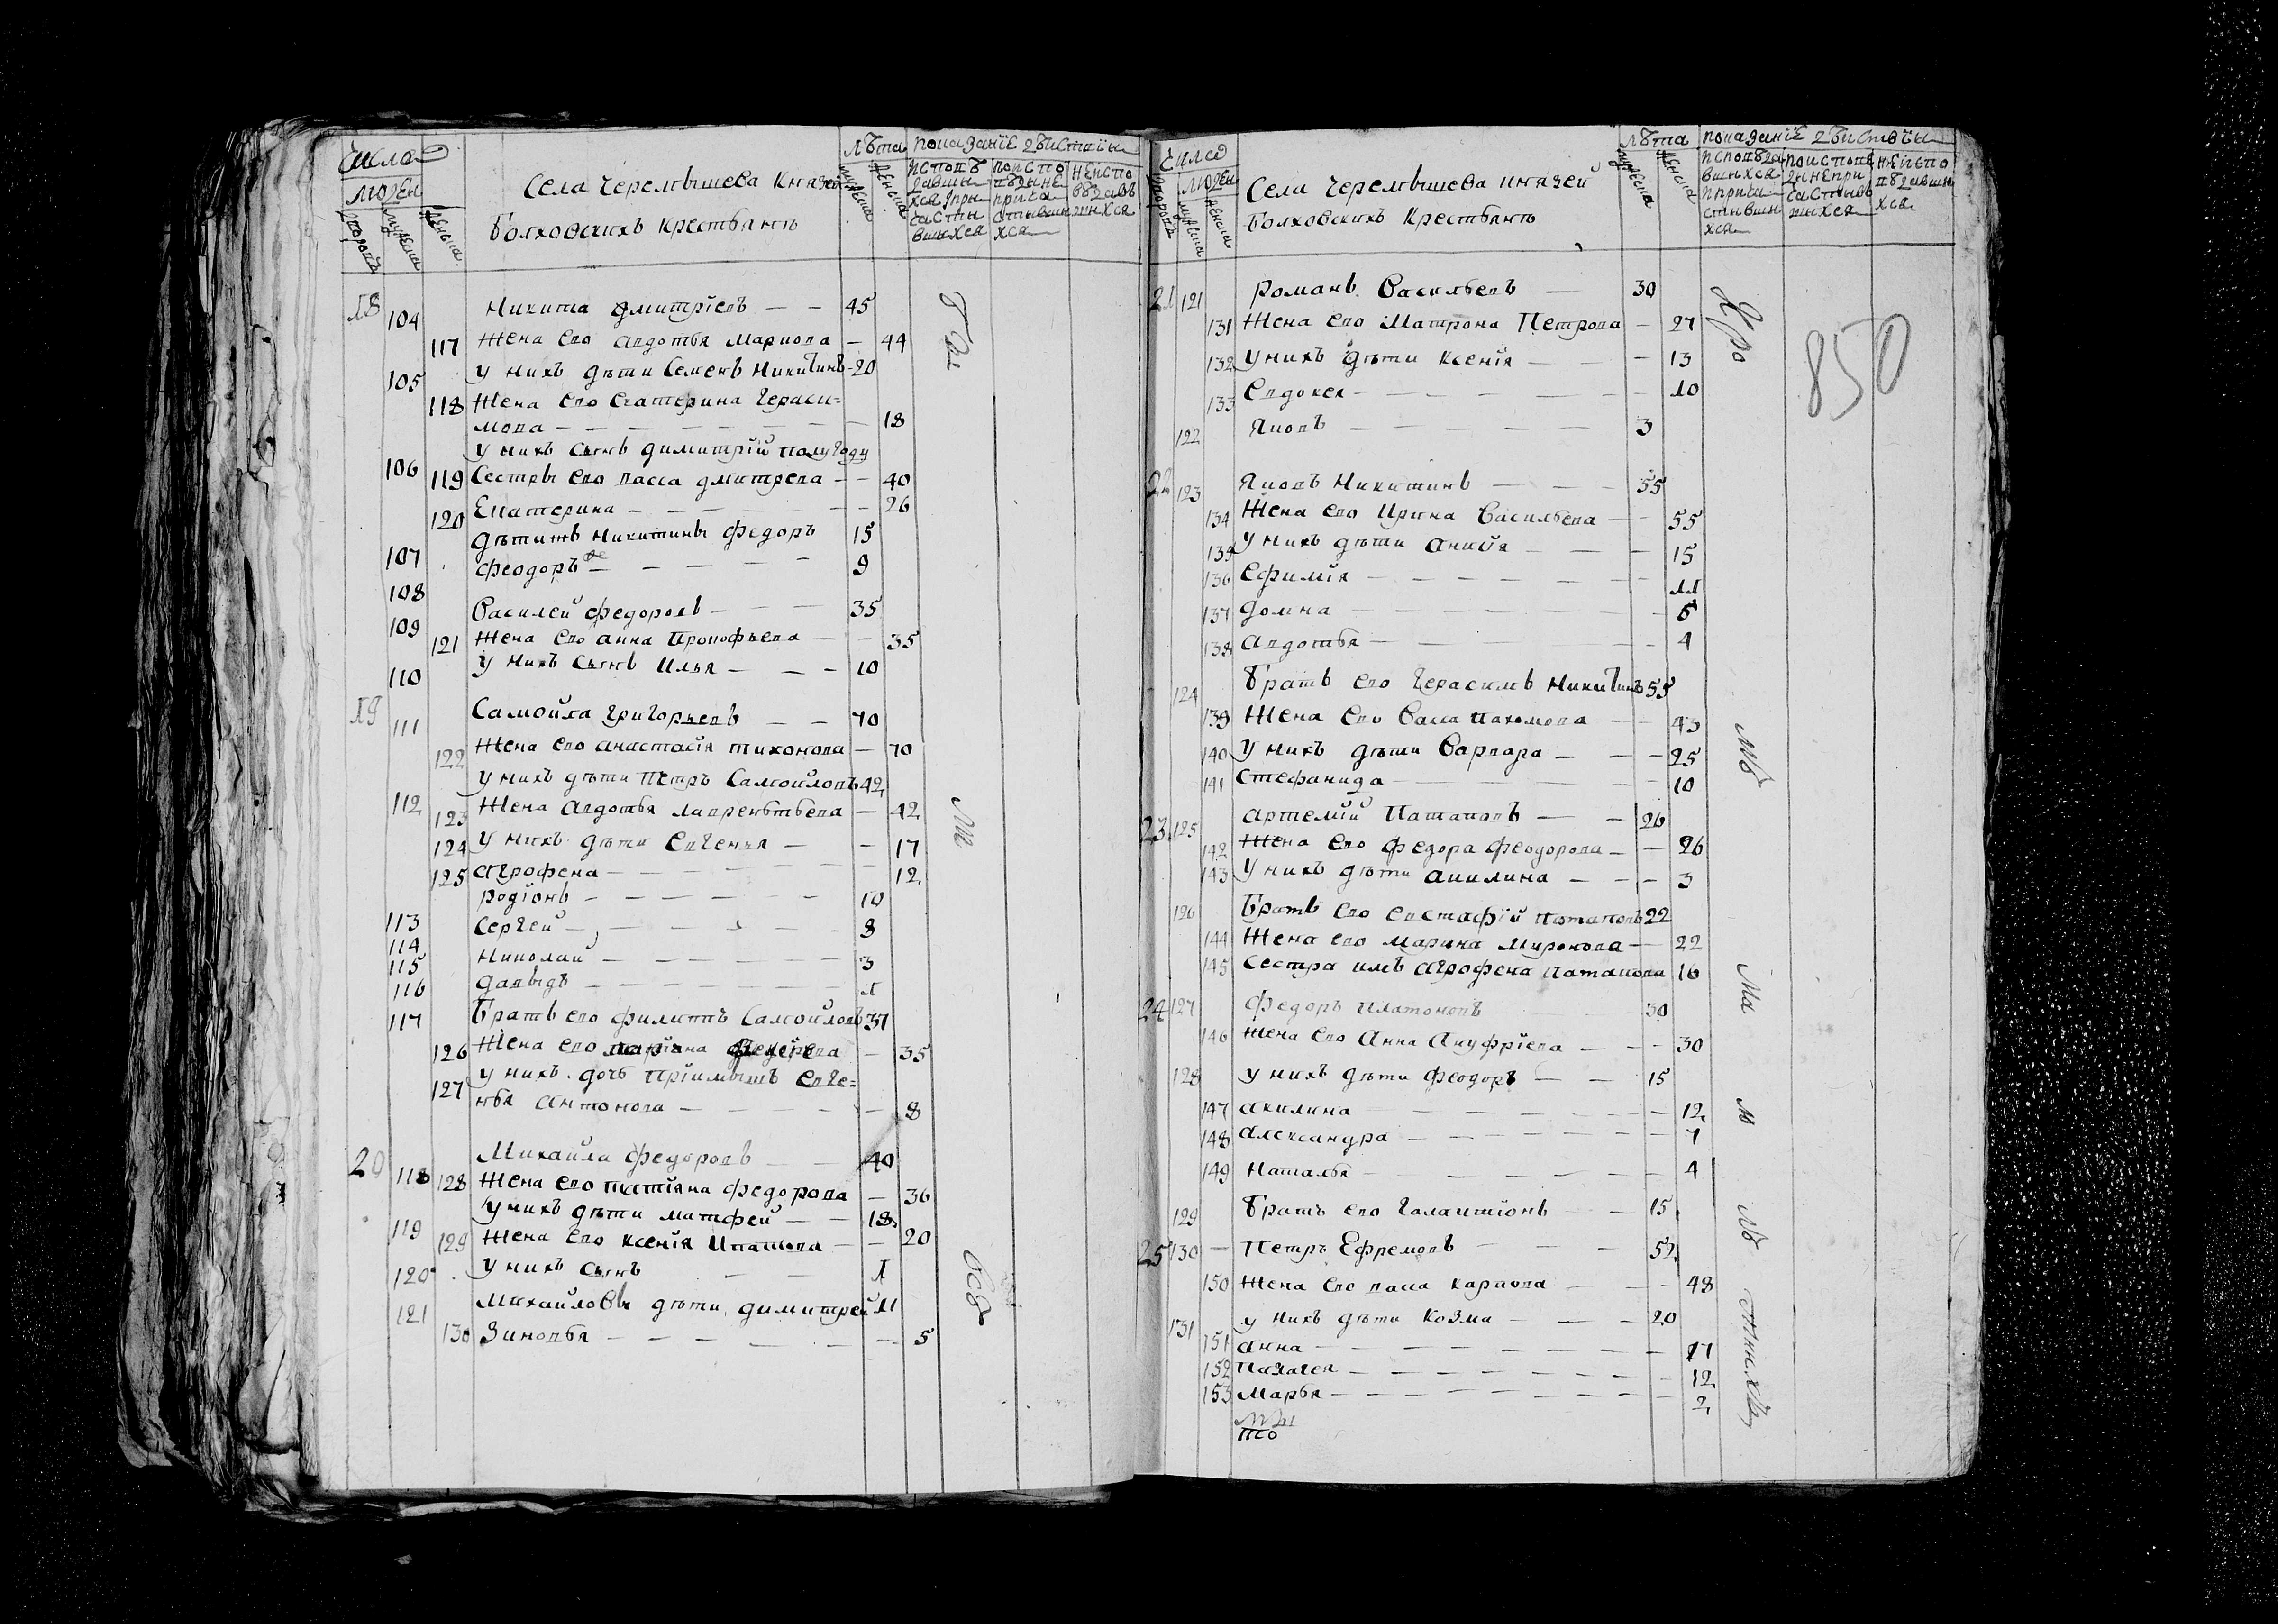 Число
людей
дворовъ
мужеска
женска
Села Черемышева Князей
Болховскихъ Крестьянъ
лѣта
мужеска
женска
показанїе действїи
исповѣ
давши
хся и при
части
вшихся
по испо
вѣди не
прича
стивши
хся
не испо
вѣдавъ
шихся
18 104 Никита Дмитрїевъ — — 45
117 Жена его Авдотья Маркова — 44
105 У нихъ дѣти Семенъ Никитинъ - 20
118 Жена его Екатерина Гераси=
мова — — — 18
106 У нихъ сынъ Димитрїй полугоду
119 Сестры его Васса Дмитрева — 40
120 Екатерина — — — 26
107 Дѣти Никитины Федоръ 15
108 Феодоръ же — — — 9
109 Василей Федоровъ — — — 35
121 Жена его Анна Прокофьева — 35
110 У нихъ сынъ Илья — — — 10
19 111 Самойла Григорьевъ — — 70
122 Жена его Анастасїя Тихонова — 70
112 У нихъ дѣти Петръ Самойловъ 42
123 Жена Авдотья Лаврентьева — 42
124 У нихъ дѣти Евгенья — — 17
125 Агрофена — — — 12
113 Родїонъ — — — 10
114 Сергей — — — 8
115 Николай — — — 3
116 Давыдъ — — — 1
117 Братъ его Филиппъ Самойловъ 37
126 Жена его — 35
127 У нихъ дочь прїимышъ Евге=
нья Антонова — — — 8
20 118 Михайла Федоровъ — 40
128 Жена его Татїяна Федорова — 36
119 У нихъ дѣти Матфей — — 18
129 Жена его Ксенїя Ипатова — — 20
120 У нихъ сынъ — — 1
121 Михайловы дѣти Димитрей 11
130 Зиновья — — — 5
Число
людей
дворовъ
мужеска
женска
Села Черемышева Князей
Болховскихъ Крестьянъ
лѣта
мужеска
женска
показанїе действїи
исповѣда
вшихся
и прича
стивши
хся
по испове
ди не при
частивъ
шихся
не испо
вѣдавши
хся
850
21 121 Романъ Васильевъ — 30
131 Жена его Матрона Петрова — 27
132 У нихъ дѣти Ксенїя — — 13
133 Евдокея — — — 10
122 Яковъ — — — 3
22 123 Яковъ Никитинъ — — 55
134 Жена его Ирина Васильева — 55
135 У нихъ дѣти — — 15
136 Ефимїя — — — 11
137 Домна — — — 5
138 Авдотья — — — 4
124 Братъ его Герасимъ Никитинъ 55
139 Жена его Васса Пахомова — 45
140 У нихъ дѣти Варвара — — 25
141 Стефанида — — 10
23 125 Артемїй Патаповъ — — 26
142 Жена его Федора Феодорова — 26
143 У нихъ дѣти Акилина — — 3
126 Братъ его Евстафїй Патаповъ 22
144 Жена его Марина Миронова — 22
145 Сестра имъ Агрофена Патапова 16
24 127 Федоръ Платоновъ 30
146 Жена его Анна Ануфрїева — — 30
128 У нихъ дѣти Феодоръ — — 15
147 Акилина — — — 12
148 Александра — — — 7
149 Наталья — — — 4
129 Братъ его Галактїонъ — 15
25 130 — Петръ Ефремовъ — — 52
150 Жена его Васса Карпова — — 48
131 У нихъ дѣти Козма — — 20
151 Анна — — — 17
152 Палагея — — — 12
153 Марья — — — 2